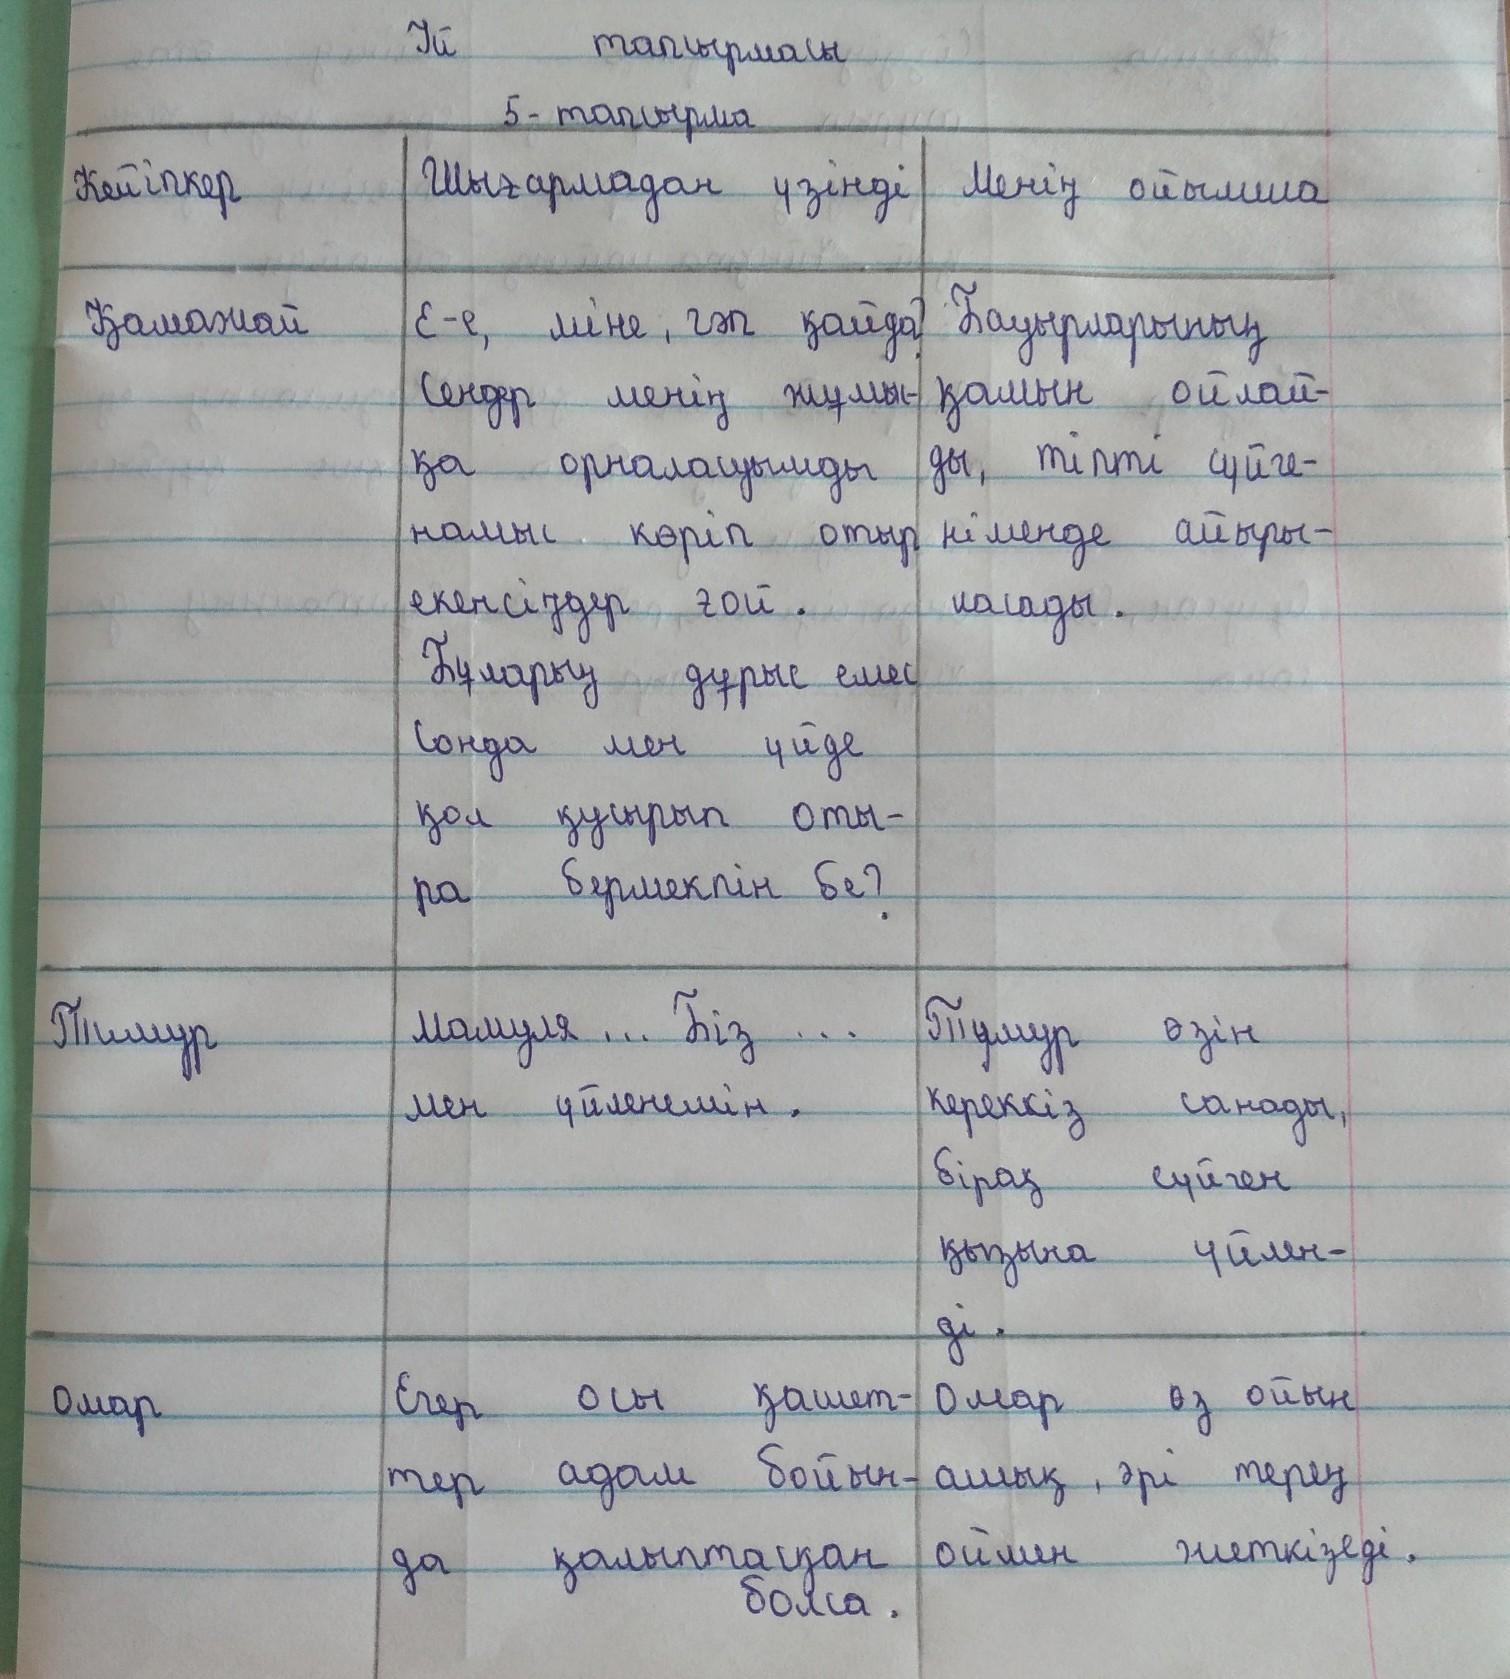 Үй тапсырмасы
5-тапсырма
Кейіпкер
Шығармадан үзінді
Менің ойымша
Қамажай
Е-е, міне, гәп қайда?
Сендер менің жұмы-
қа орналасуымды
намыс көріп отыр
екенсіңдер ғой.
Бұларың дұрыс емес
Сонда мен үйде
қол қусырып оты-
ра бермекпін бе?
Бауырларының
қамын ойлай-
ды, тіпті сүйге-
німенде айыры-
ласады.
Тимур
Мамуля... Біз ...
мен үйленемін.
Тумур өзін
кереккіз санады,
бірақ сүйген
қызына үйлен-
ді.
Омар
Егер осы қашет-
тер адам бойын-
да қалыптасқан
болса.
Омар өз ойын
ашық, әрі терең
оймен жеткізеді.